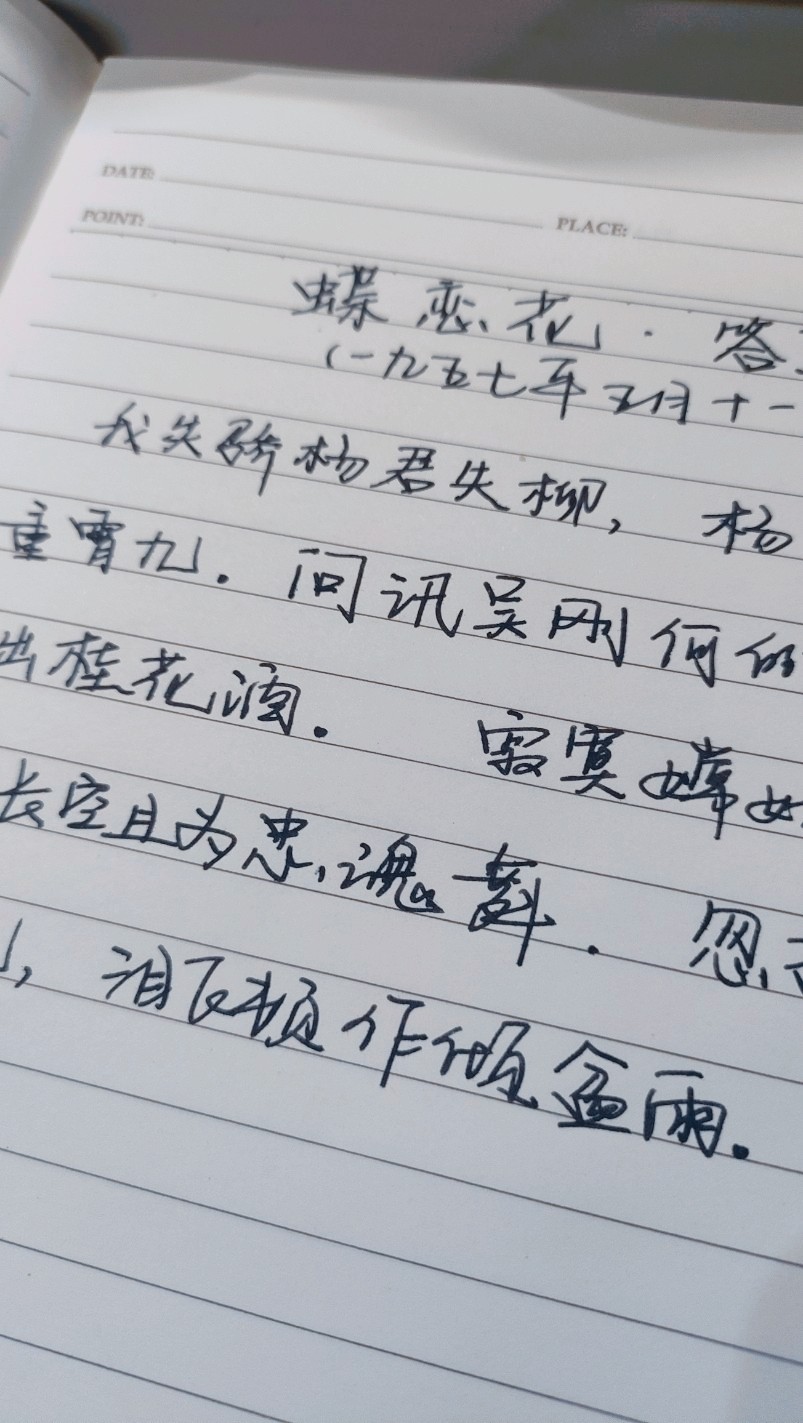 DATE:
POINT: PLACE:
蝶恋花·答
(一九五七年五月十一
我失骄杨君失柳,杨
重霄九.问讯吴刚何
出桂花酒. 寂寞嫦
长空且为忠魂舞. 忽
,泪飞顿作倾盆雨.